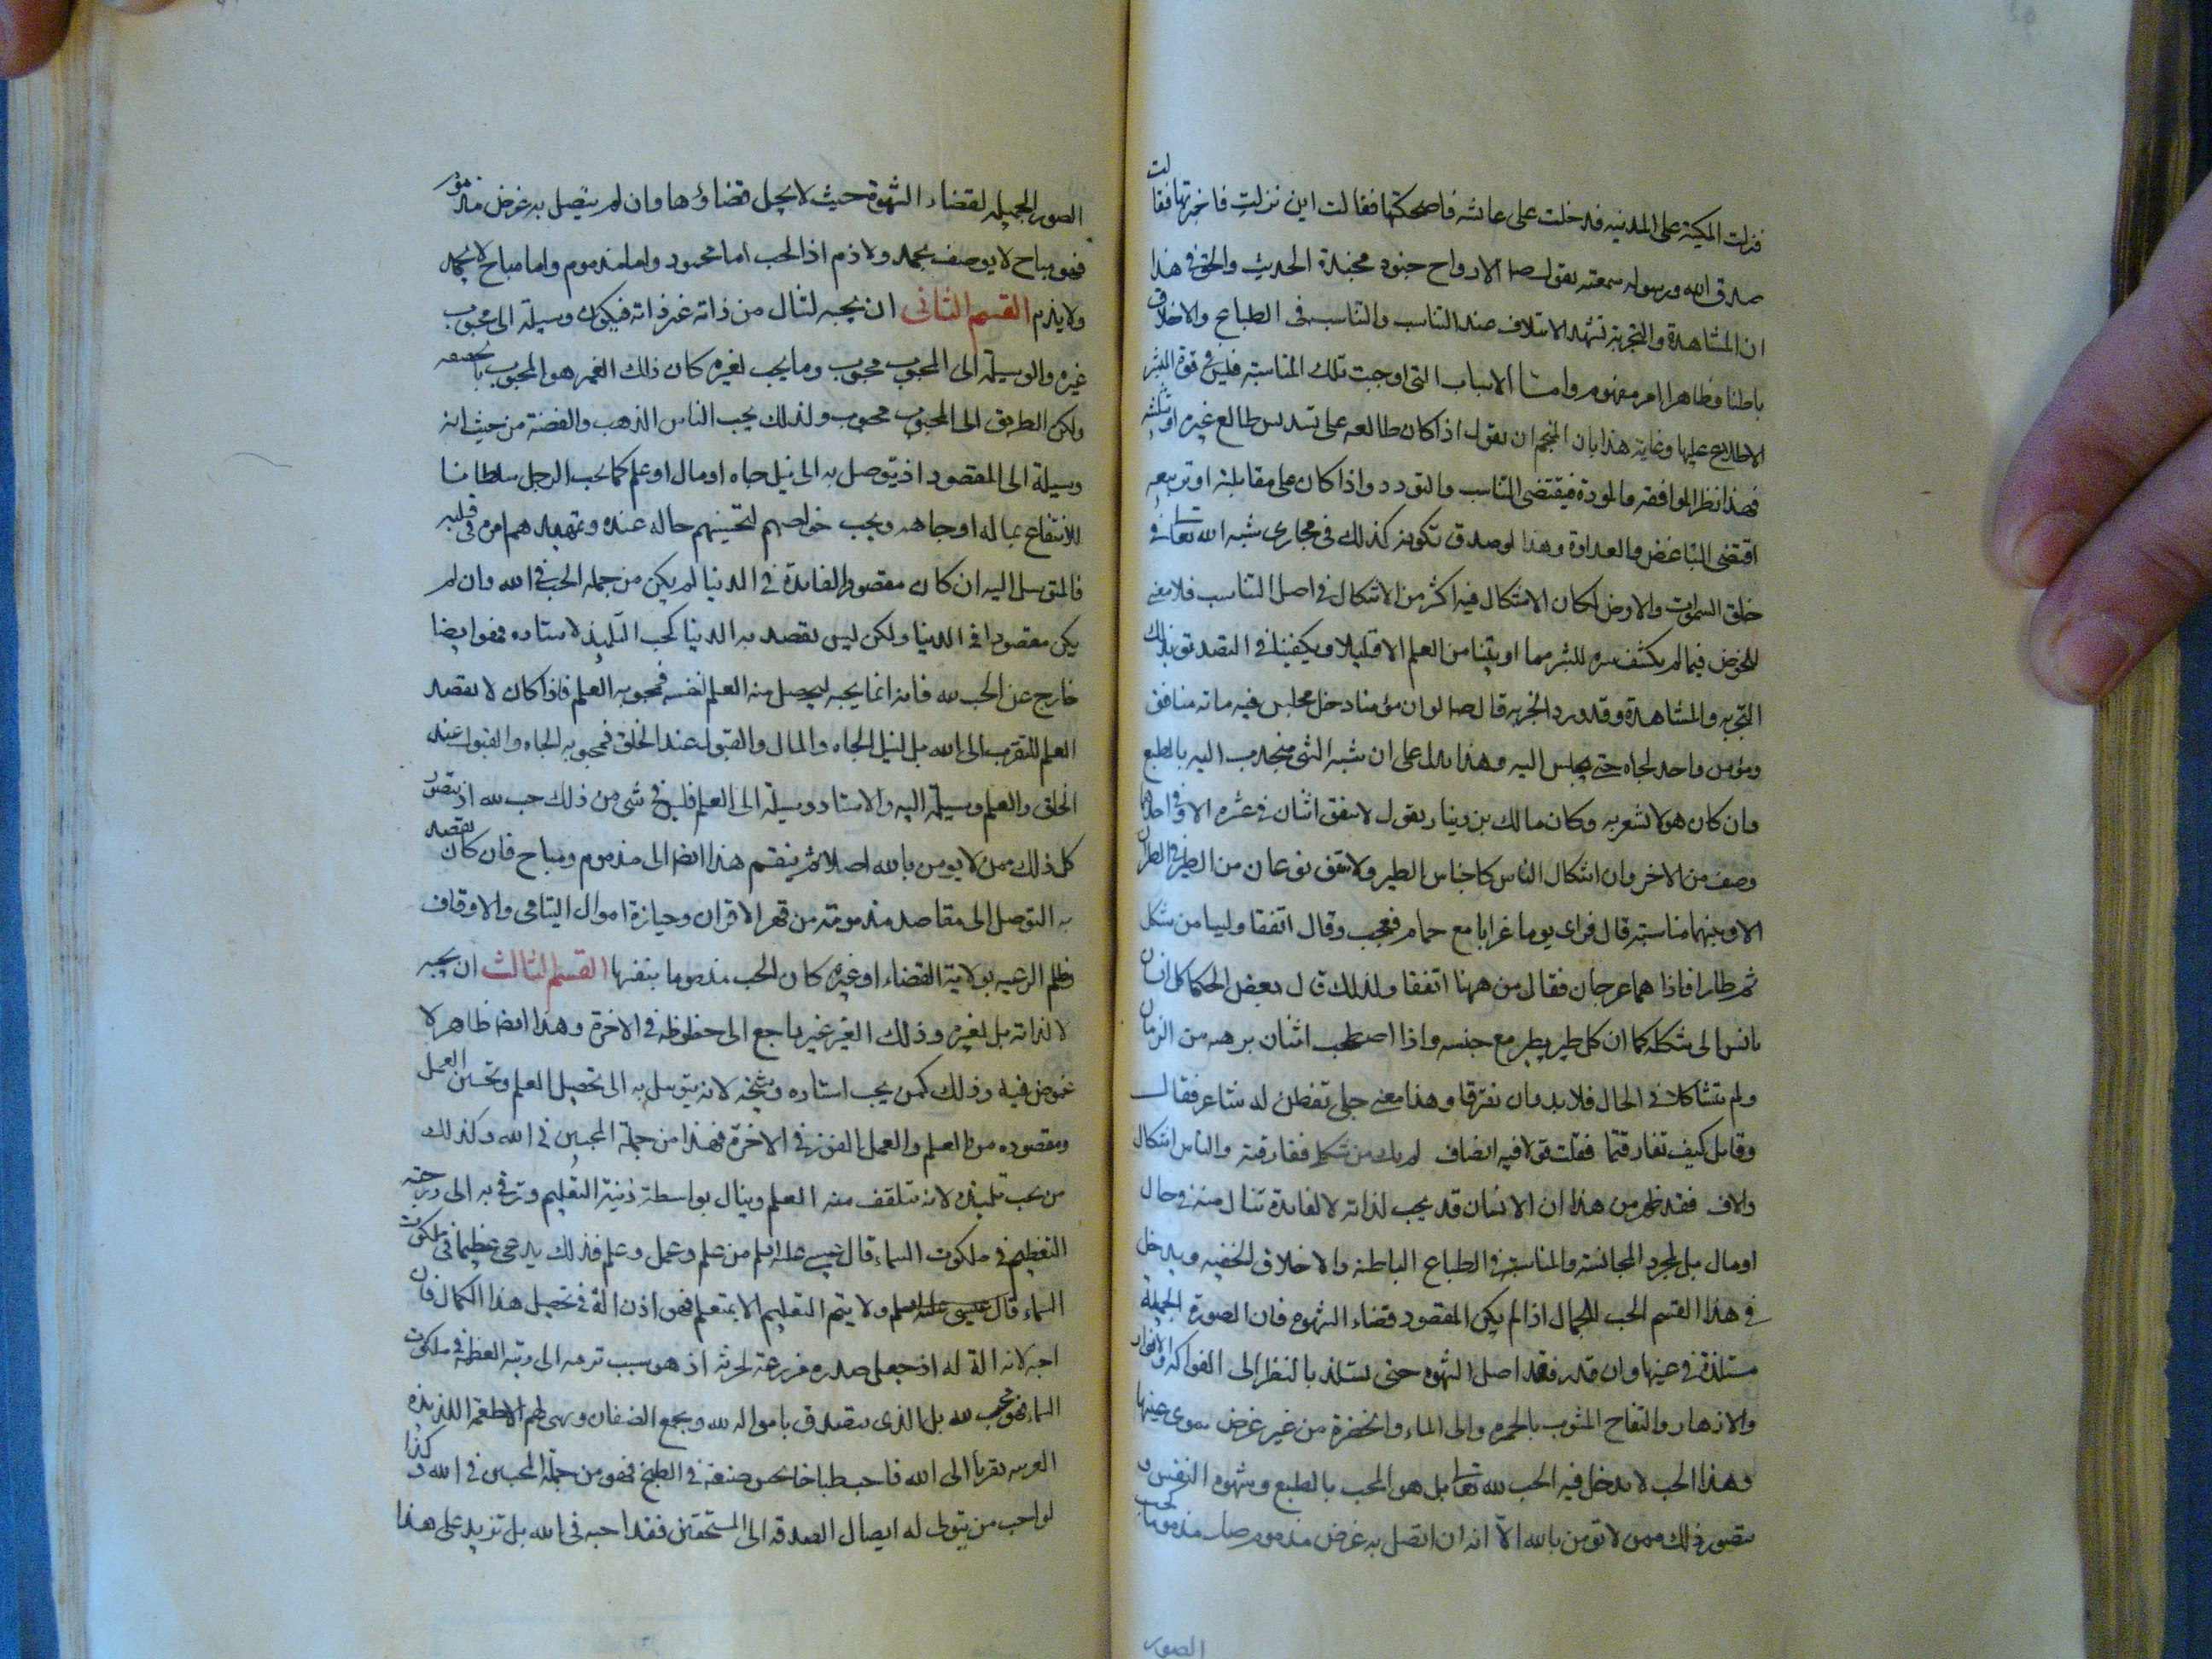 فنزلت المكية على المدنيه فدخلت على عايشه فاضحكتها فقالت اين نزلت فاخبرتها فقالت
صدق الله ورسوله سمعته يقول صلم الارواح جنود مجندة الحديث والحق فى هذا
ان المشاهدة والتجربة تشهد للايتلاف عند التناسب والتناسب فى الطباع والاخلاق
باطنا وظاهرا امر مفهوم واما الاسباب التى اوجبت تلك المناسبة فليس فى قوة البشر
الاطلاع عليها وغاية هذيان المنجم ان يقول اذا كان طالعه على تسديس طالع غيره او تثليثه
فهذا نظر الموافقه والمودة فيقتضى التناسب والتودد واذا كان على مقابلة او تربيعه
اقتضى التباغض والعداوة وهذا لو صدق بكونه كذلك فى مجارى سنة الله تعالى فى
خلق السموات والارض لكان الاشكال فيه اكثر من الاشكال فى اصل التناسب فلا معنى
للخوض فيما لم يكشف سره للبشر مما اوتينا من العلم الا قليلا ويكفينا فى التصديق بذلك
التجربه والمشاهدة وقد ورد الخبر به قال صلم لو ان مؤمنا دخل مجلس فيه مائه منافق
ومؤمن واحد لجاء حتى يجلس اليه وهذا يدل على ان شبه الشئ منجذب اليه بالطبع
وان كان هو لا يشعر به وكان مالك بن دينار يقول لا يتفق اثنان فى عشره الا وفى احدهما
وصف من الاخر وان اشكال الناس كاجناس الطير ولا يتفق نوعان من الطير فى الطيران
الا وبينهما مناسبة قال فراى يوما غرابا مع حمام فعجب وقال اتفقا وليسا من شكل
ثم طارا فاذا هما عرجان فقال من ههنا اتفقا ولذلك قال بعض الحكما كل انسان
يانس الى شكله كما ان كل طير يطير مع جنسه واذا اصطحب اثنان برهه من الزمان
ولم يتشاكلا فى الحال فلا بد وان يفترقا وهذا معنى جلى تفطن له شاعر فقال
وقايل كيف تفارقتما فقلت قولا فيه انصاف لم يك من شكلى ففارقته والناس اشكال
والاف فقد ظهر من هذا ان الانسان قد يحب لذاته لا لفايدة تنال منه فى حال
او مال بل لمجرد المجانسة والمناسبة فى الطباع الباطنه والاخلاق الخفيه ويدخل
فى هذا القسم الحب للجمال اذا لم يكن المقصود قضاء الشهوه فان الصورة الجميلة
مستلذة فى عينها وان قدر فقد اصل الشهوه حتى يستلذ بالنظر الى الفواكه والانوار
والازهار والتفاح المشوب بالحمره والى الماء والخضرة من غير غرض سوى عينها
وهذا الحب لا يدخل فيه الحب لله تعالى بل هو الحب بالطبع وشهوه النفس و
يتصور ذلك ممن لا يؤمن بالله الا انه ان اتصل به غرض مذموم صار مذموما كحب
الصور
الصور الجميله لقضاء الشهوة حيث لا يحل قضاؤها وان لم يتصل به غرض مذموم
فهو مباح لا يوصف بحمد ولا ذم اذ الحب اما محمود واما مذموم واما مباح لا يحمد
ولا يذم القسم الثانى ان يحبه لتنال من ذاته غير ذاته فيكون وسيلة الى محبوب
غيره والوسيلة الى المحبوب محبوب وما يحب لغيره كان ذلك الغير هو المحبوب بالحقيقه
ولكن الطريق الى المحبوب محبوب ولذلك يحب الناس الذهب والفضة من حيث انه
وسيلة الى المقصود اذ يتوصل به الى نيل جاه او مال او علم كما يحب الرجل سلطانا
للانتفاع بماله او جاهه ويحب خواصهم لتحسينهم حاله عنده وتمهيدهم امره فى قلبه
فالمتوسل اليه ان كان مقصور الفايدة فى الدنيا لم يكن من جمله الحب فى الله وان لم
يكن مقصودا فى الدنيا ولكن ليس يقصد به الدنيا كحب التلميذ لاستاده فهو ايضا
خارج عن الحب لله فانه انما يحبه ليحصل منه العلم لنفسه فمحبوبه العلم فاذا كان لا يقصد
العلم للتقرب الى الله بل لنيل الجاه والمال والقبول عند الخلق فمحبوبه الجاه والقبول عند
الخلق والعلم وسيلة اليه والاستاد وسيلة الى العلم فليس فى شى من ذلك حب لله اذ يتصور
كل ذلك ممن لا يومن بالله اصلا ثم ينقسم هذا ايضا الى مذموم ومباح فان كان يقصد
به التوصل الى مقاصد مذمومة من قهر الاقران وحيازة اموال اليتامى والاوقاف
وظلم الرعيه بولاية القضاء او غيره كان الحب مذموما بنفسها القسم الثالث ان يحبه
لا لذاته بل لغيره وذلك الغير غير راجع الى حظوظه فى الاخرة وهذا ايضا ظاهر لا
غموض فيه وذلك كمن يحب استاده وشيخه لانه يتوسل به الى تحصيل العلم وتحسين العمل
ومقصوده من العلم والعمل الفوز فى الاخرة فهذا من جملة المحبين فى الله وكذلك
من يحب تلميذه لانه يتلقف منه العلم وينال بواسطة رتبة التعليم وترقى به الى درجة
التعظيم فى ملكوت السماء قال عيسى عليه السلم من علم وعمل وعلم فذلك يدعى عظيما فى ملكوت
السماء قال عيسى عليه السلم ولا يتم التعليم الا بمتعلم فهو اذن الة فى تحصيل هذا الكمال فان
احبه لانه الة له اذ جعل صدره مزرعة لحرثه اذ هو سبب ترقيه الى رتبة العظمة فى ملكوت
السماء فهو محب لله بل الذى يتصدق بامواله لله ويجمع الضيفان ويهى لهم الاطعمة اللذيذه
الغريبه تقربا الى الله فاحب طباخا لحسن صنعته فى الطبخ فهو من جملة المحبين فى الله وكذا
لو احب من يتولى له ايصال الصدقه الى المستحقين فقد احبه فى الله بل تزيد على هذا